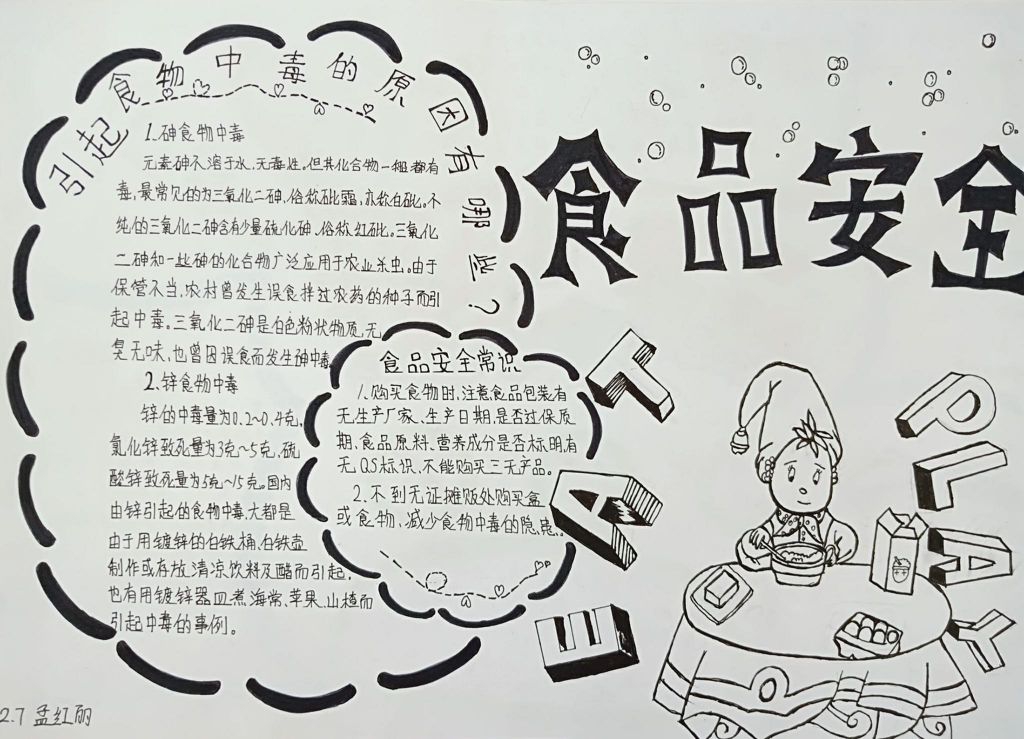 引起食物中毒的原因有哪些？
1.砷食物中毒
元素砷不溶于水,无毒性。但其化合物一粗都有
毒,最常见的为三氧化二砷,俗称砒霜,亦称白砒。不
纯的三氧化二砷含有少量硫化砷,俗称红砒。三氧化
二砷和一些砷的化合物广泛应用于农业杀虫。由于
保管不当,农村曾发生误食拌过农药的种子而引
起中毒。三氧化二砷是白色粉状物质,无
臭无味,也曾因误食而发生砷中毒
2.锌食物中毒
锌的中毒量为0.2~0.4克,
氯化锌致死量为3克~5克,硫
酸锌致死量为5克~15克。国内
由锌引起的食物中毒,大都是
由于用镀锌的白铁桶、白铁壶
制作或存放清凉饮料及醋而引起,
也有用镀锌器皿煮海棠、苹果、山楂而
引起中毒的事例。
食品安全常识
1.购买食物时,注意食品包装有
无生产厂家、生产日期,是否过保质
期,食品原料、营养成分是否标明,有
无QS标识,不能购买三无产品。
2.不到无证摊贩处购买盒
或食物,减少食物中毒的隐患。
食品安全
EAT
PLAY
2.7 孟红丽